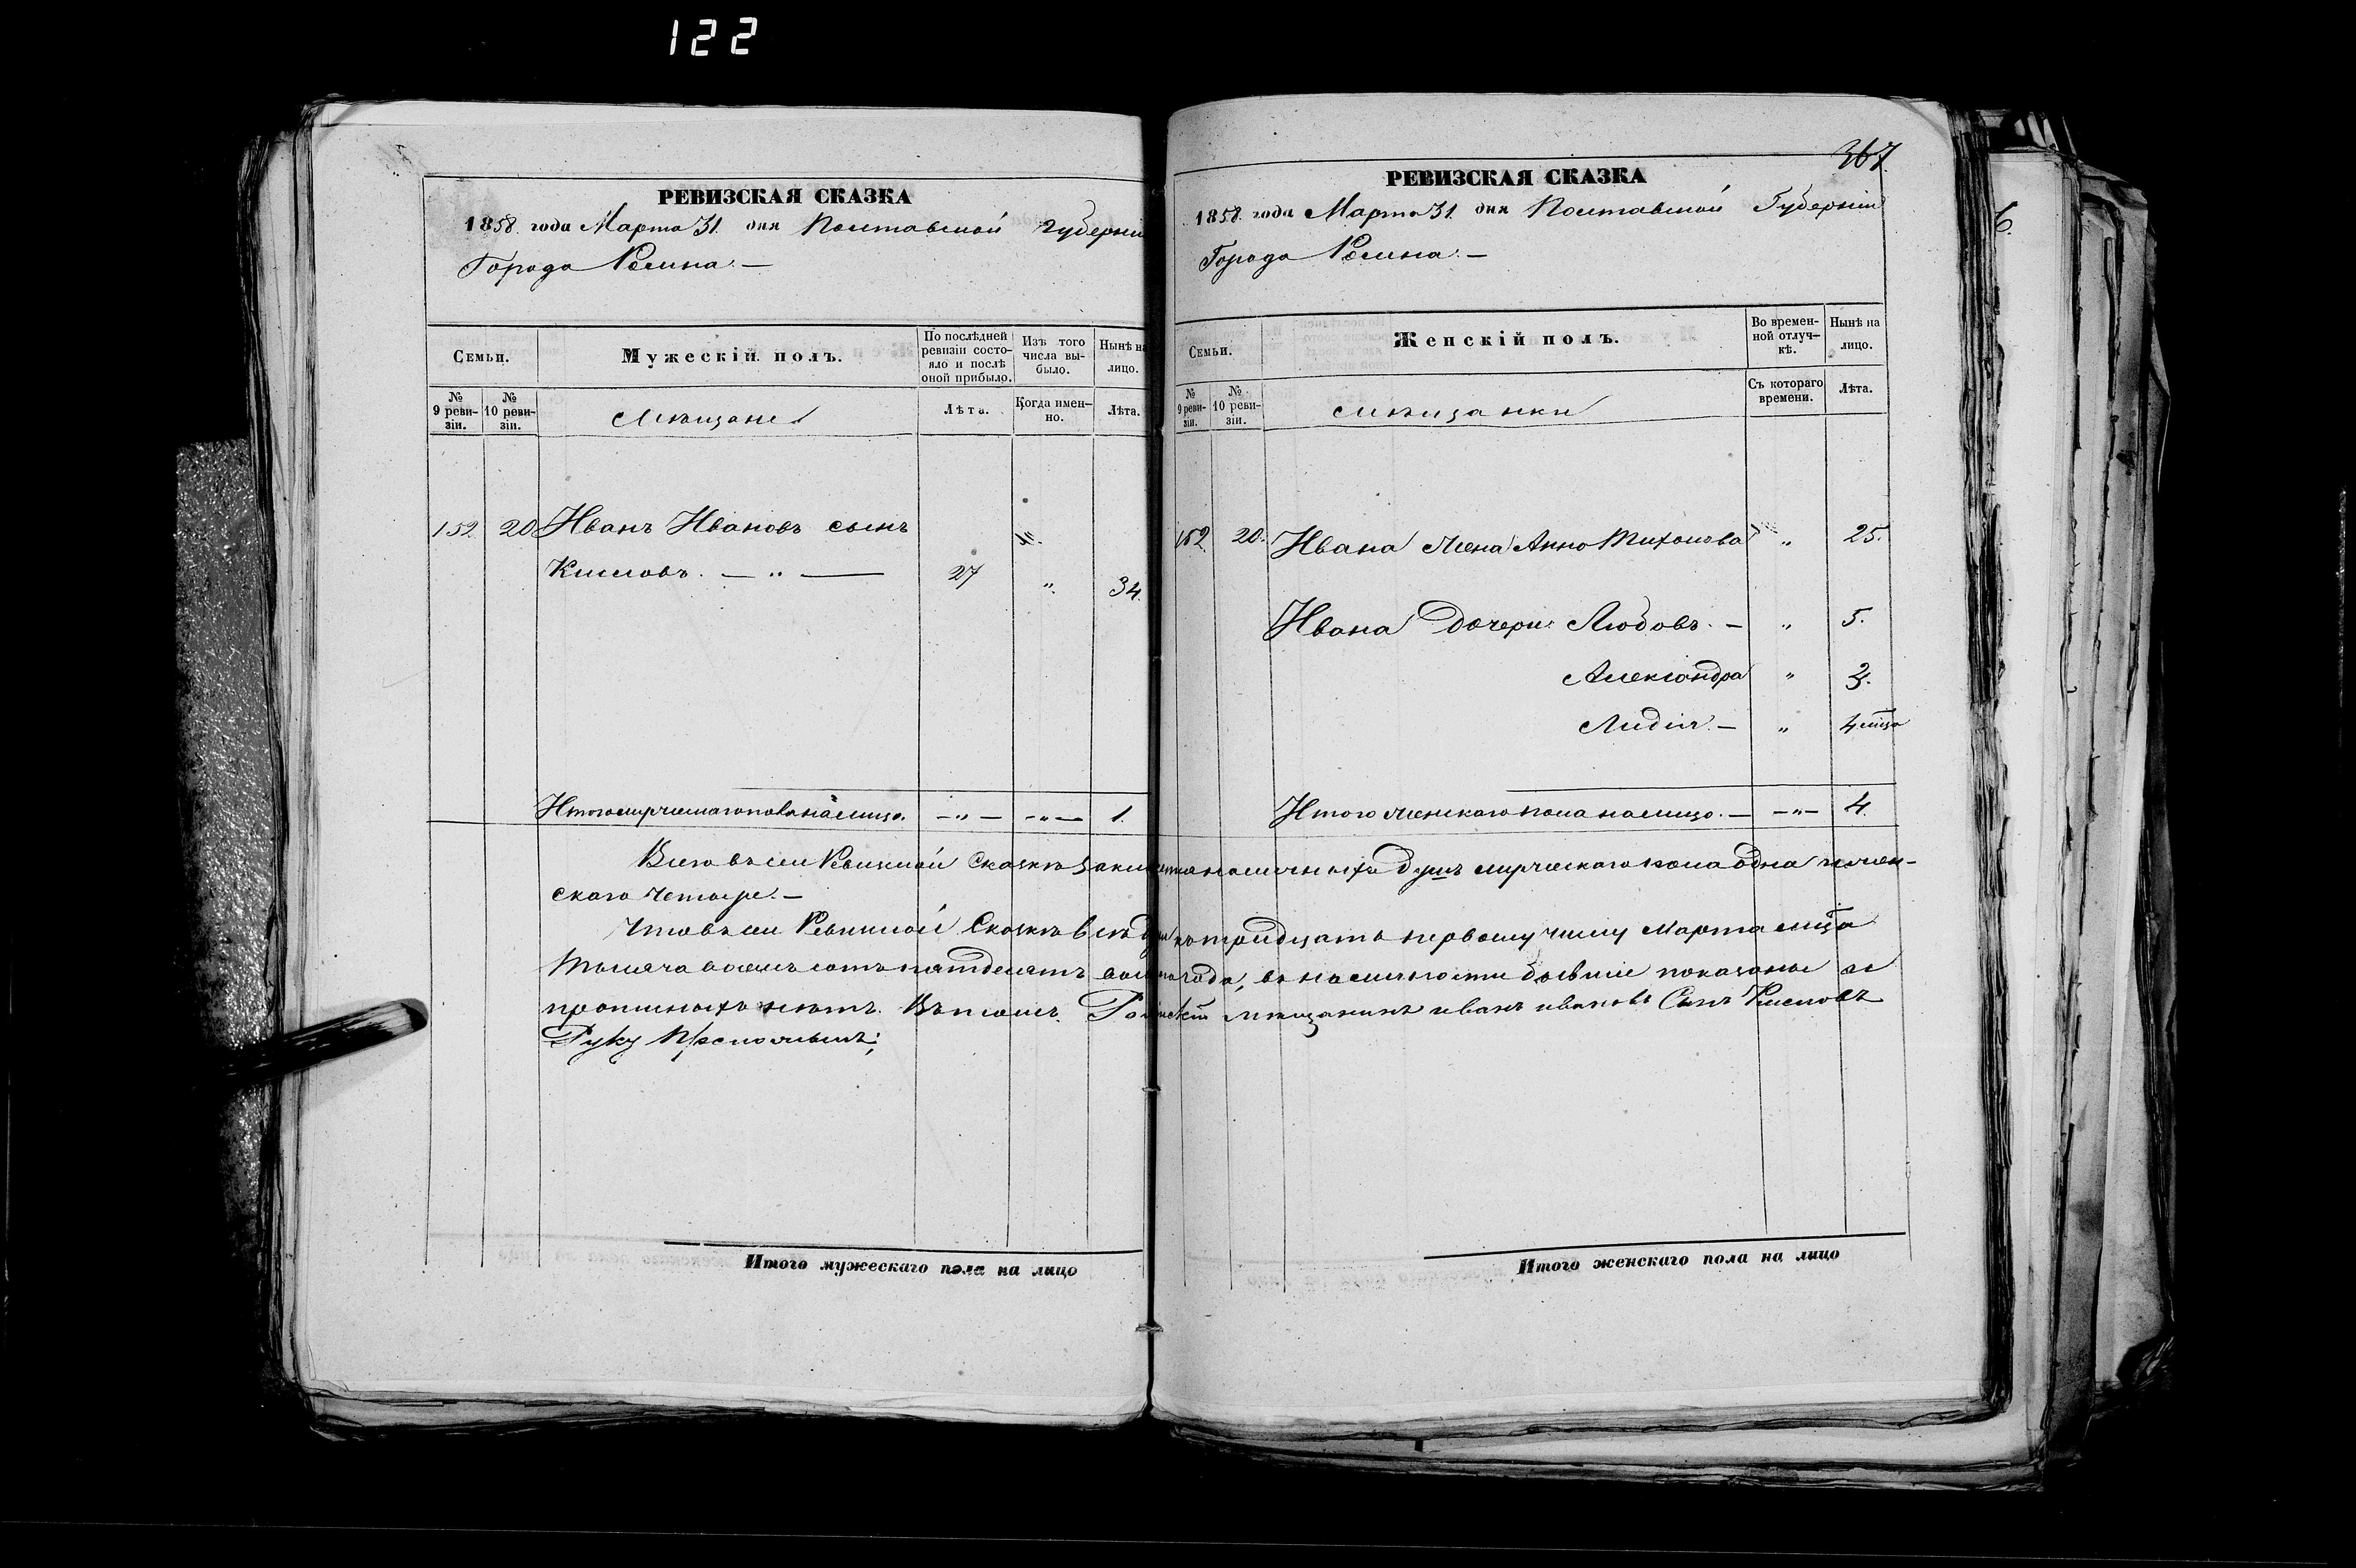 122
367.
РЕВИЗСКАЯ СКАЗКА
1858. года Марта 31. дня Полтавской губерніи
Города Ромна. —
Семьи.
Мужескій полъ.
По послѣдней ревизіи состояло и послѣ оной прибыло.
Изъ того числа выбыло.
Нынѣ на лицо.
№ 9 ревизіи.
№ 10 ревизіи.
Мѣщане
Лѣта.
Когда именно.
Лѣта.
152. 20 Иванъ Ивановъ сынъ
— „ — 27 „ 34.
Итого мужескаго пола на лицо. — „ — — „ — 1.
РЕВИЗСКАЯ СКАЗКА
1858. года Марта 31. дня Полтавской Губерніи
Города Ромна. —
Семьи.
Женскій полъ.
Во временной отлучкѣ.
Нынѣ на лицо.
№ 9 ревизіи.
№ 10 ревизіи.
мѣщанки
Съ котораго времени.
Лѣта.
152. 20. Ивана жена Анна Тихонова „ 25.
Ивана дочери: Любовь. — „ 5.
Александра „
Лидія. — „ 4 мѣца
Итого женскаго пола на лицо. — — „ — 4.
Всего въ сей Ревизской Сказкѣ наличныхъ душъ мужескаго пола одна и жен-
скаго четыре. —
Что въ сей Ревизской Сказкѣ всѣ души къ тридцать первому числу Марта мѣца
тысяча восемь сотъ пятдесятъ года, въ наличности бывшіе показаны и
прописныхъ нѣтъ. Въ томъ мѣщанинъ иванъ ивановъ Сынъ
Руку приложилъ;
Итого мужескаго пола на лицо
Итого женскаго пола на лицо